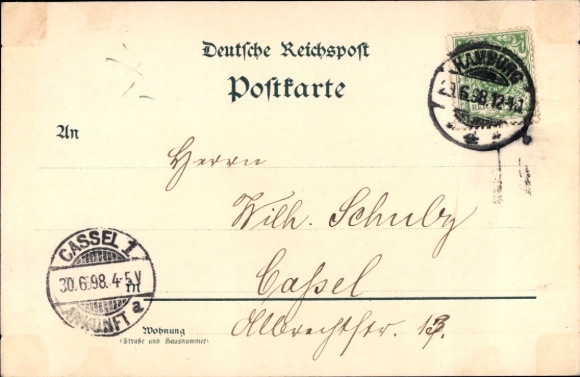 Deutsche Reichspost
Postkarte
HAMBURG
29.6.98.12-1N
An
Herrn
Wilh. Schulz
CASSEL 1
30.6.98.4-5V
ANKUNFT a
Cassel
in
Albrechtstr. 13.
Wohnung
(Straße und Hausnummer)